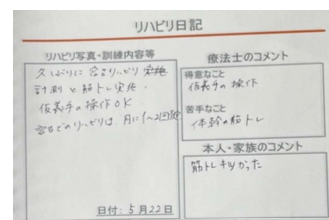 リハビリ日記
リハビリ写真・訓練内容等
久しぶりに 宮のリハビリ 実施
計測と筋トレ実施。
仮義手の操作OK
でのリハビリは、月に1~2回
日付:5月22日
療法士のコメント
得意なこと
仮義手の操作
苦手なこと
体幹の筋トレ
本人・家族のコメント
筋トレキツかった